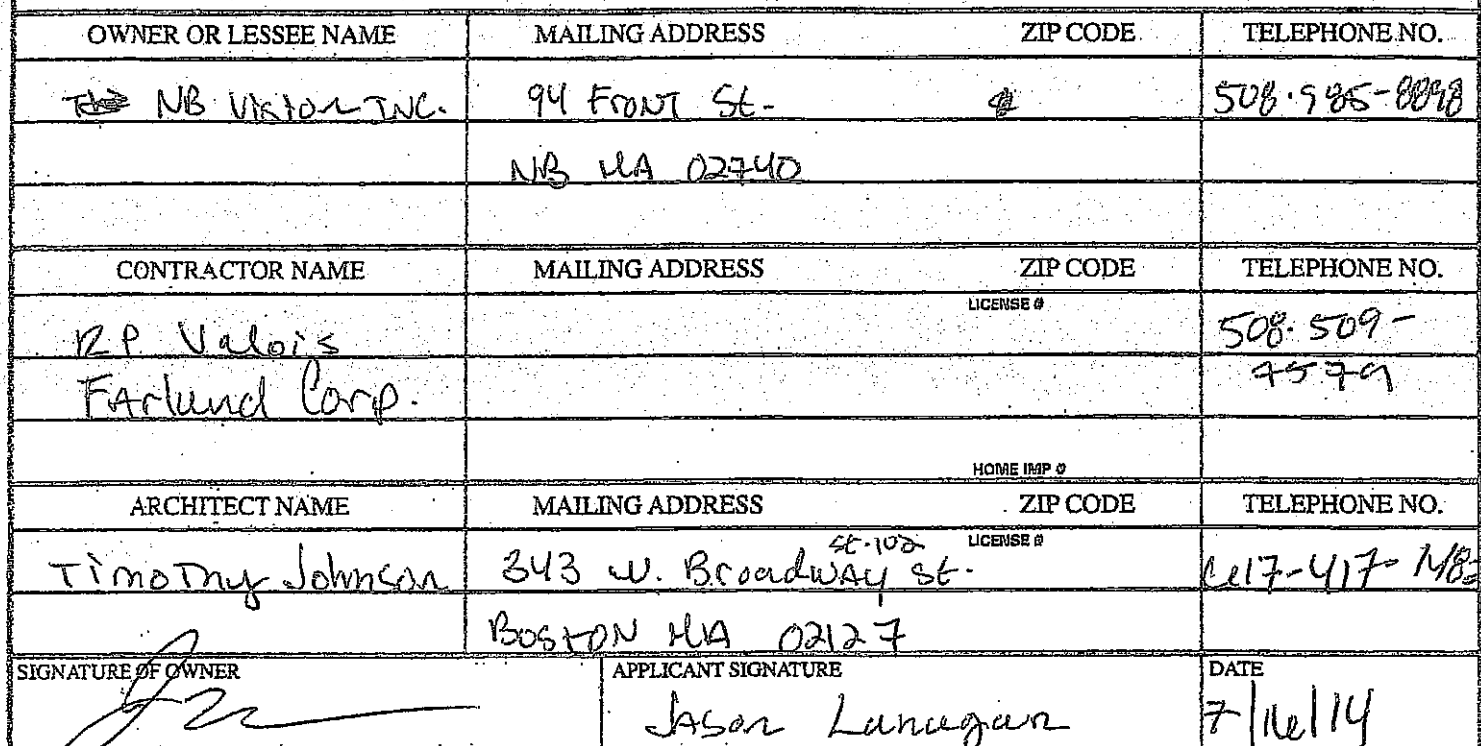 OWNER OR LESSEE NAME MAILING ADDRESS ZIP CODE TELEPHONE NO.
NB Vision INC. 94 FRONT St. 508.985-8898
NB MA 02740
CONTRACTOR NAME MAILING ADDRESS ZIP CODE TELEPHONE NO.
LICENSE #
RP Valois 508.509-
Farland Corp. 7579
HOME IMP #
ARCHITECT NAME MAILING ADDRESS ZIP CODE TELEPHONE NO.
St.102 LICENSE #
Timothy Johnson 343 W. Broadway St. 617-417-
BOSTON MA 02127
SIGNATURE OF OWNER APPLICANT SIGNATURE DATE
Jason Lanagan 7/16/14